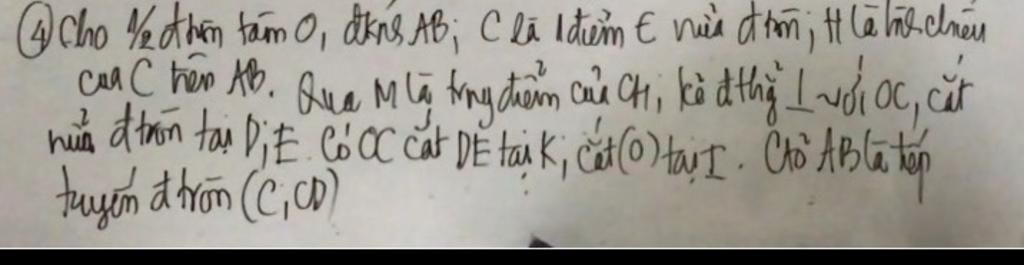 ④ Cho ½ đ tròn tâm O, đkng AB; C là 1 điểm ∈ nửa đ tròn; H là hình chiếu
của C trên AB. Qua M là trung điểm của CH, kẻ đ thg̉ ⊥ với OC, cắt
nửa đ tròn tại D, E. Có OC cắt DE tại K, cắt (O) tại I. Cm̉ AB là tiếp
tuyến đ tròn (C, CD)